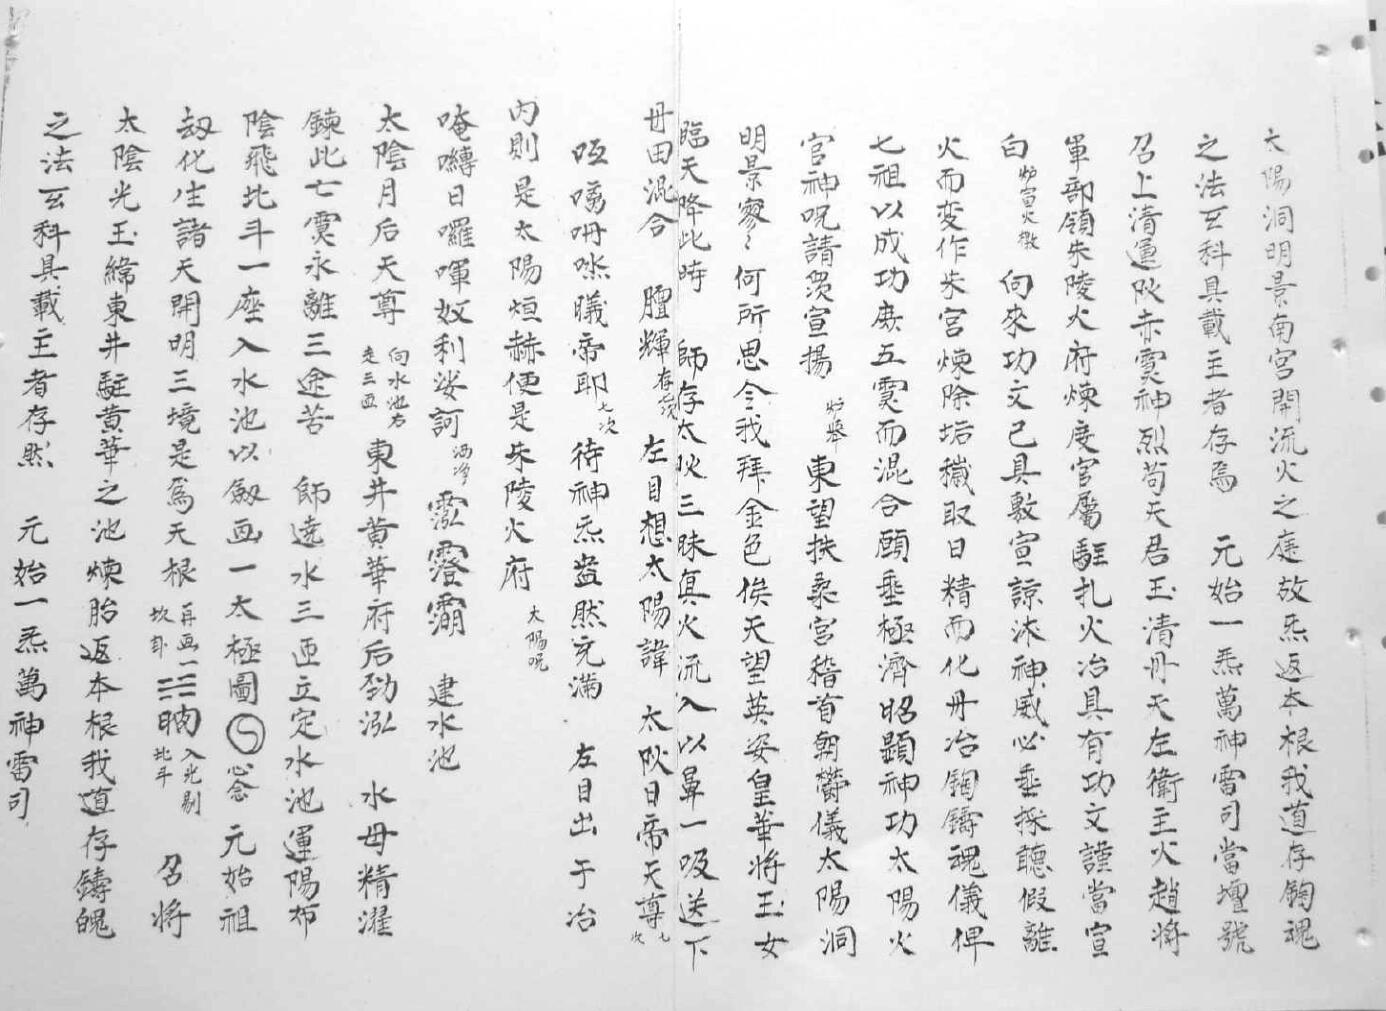 太陽洞明景南宮開流火之庭故炁返本根我道存鉤魂
之法玄科具載主者存焉　元始一炁萬神雷司當壇號
召上清運火赤靈神烈苟天君玉清丹天左衛主火趙將
軍部領朱陵火府煉度官屬駐扎火冶具有功文謹當宣
白 炉宣火檄 向來功文已具敷宣諒沐神威必垂採聽假離
火而变作朱宮煉除垢穢取日精而化丹冶鉤鑄魂儀俾
七祖以成功庚五靈而混合願垂極濟昭顯神功太陽火
官神呪請眾宣揚 炉举 東望扶桑宮稽首朝欝儀太陽洞
明景寥々何所思令我拜金色俟天望英姿皇華将玉女
臨天降此時　師存太火三昧真火流入以鼻一吸送下
丹田混合　膻輝 左目想太陽諱　太火日帝天尊 九次
曦帝耶 七次 待神炁盎然充滿　左目出于冶
內則是太陽烜赫便是朱陵火府 太陽呪
唵嚩日囉唵奴利娑訶 洒净 建水池
太陰月后天尊 向水池右走三匝 東井黃華府后劲泓　水母精濯
鍊此七靈永離三途苦　師遶水三匝立定水池運陽布
陰飛北斗一座入水池以劍画一太極圖 念　元始祖
劫化生諸天開明三境是爲天根 再画坎卦 ☵ 入光剔北斗 召将
太陰光玉緯東井駐黃華之池煉胎返本根我道存鑄魄
之法玄科具載主者存然　元始一炁萬神雷司